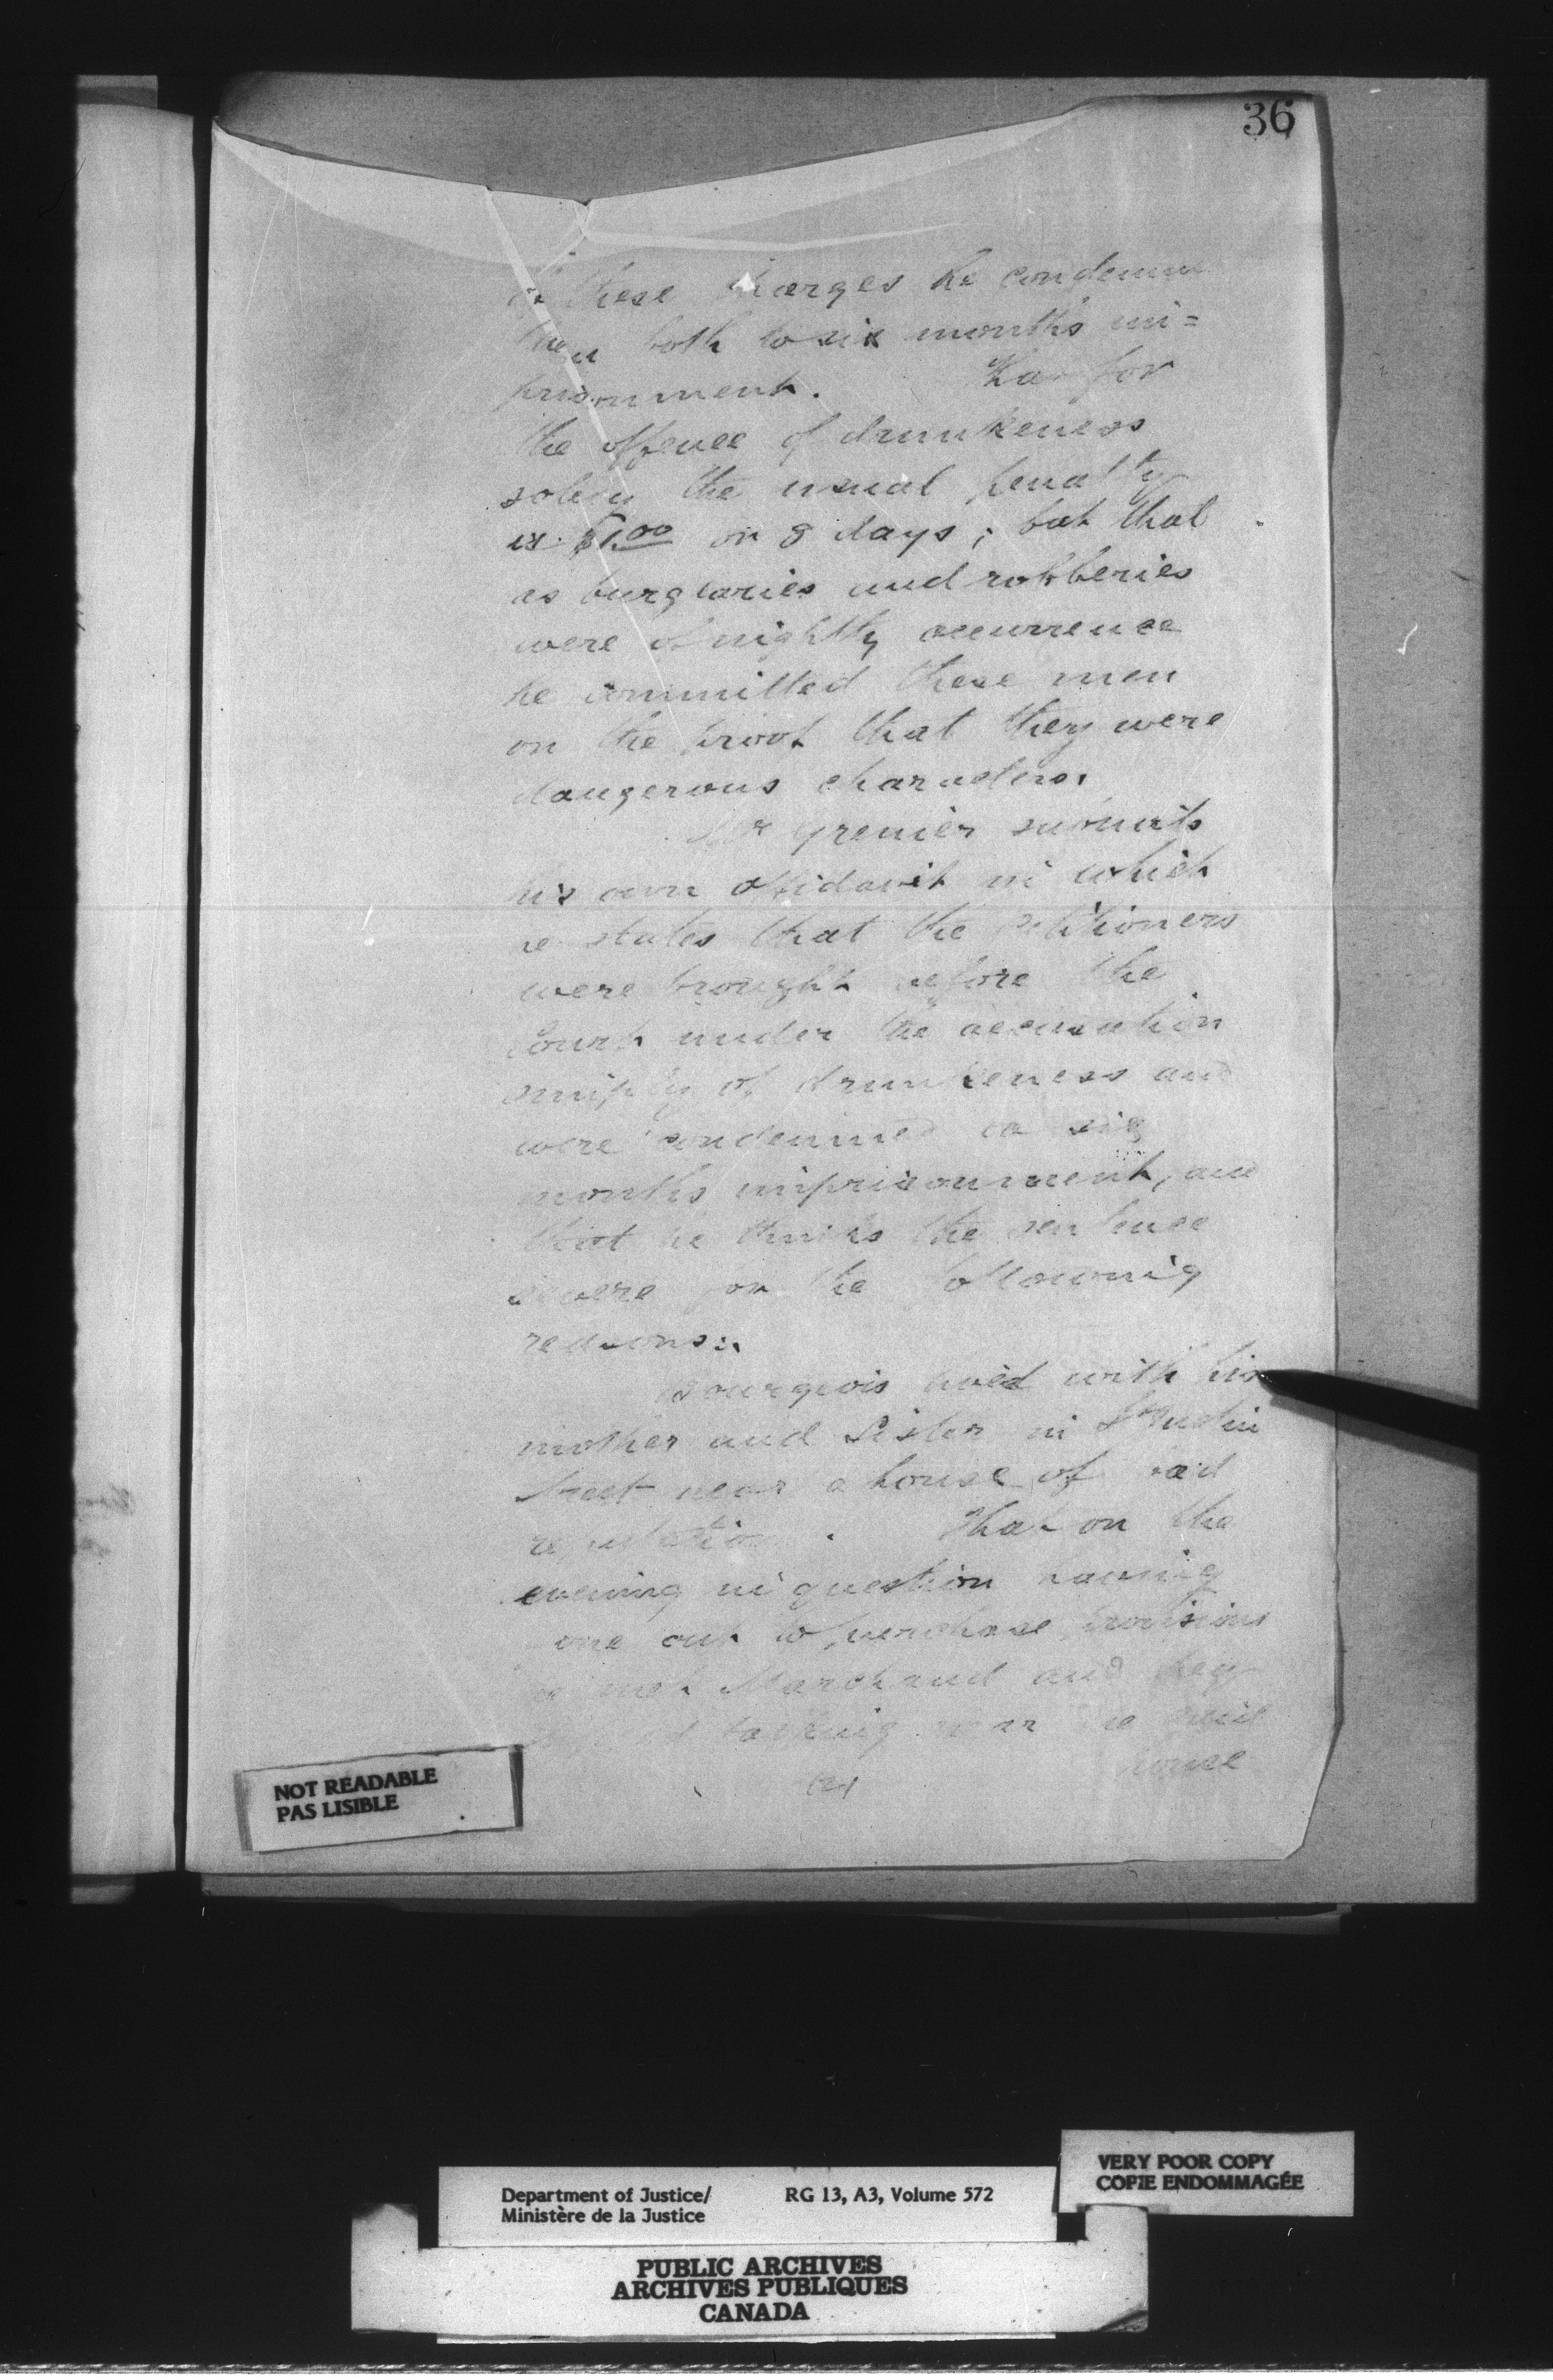 36
of these charges he condemned
them both to six months im=
prisonment. That for
the offence of drunkeness
solely the usual penalty
is $1.00 or 8 days; but that
as burglaries and robberies
were of nightly occurrence
he committed these men
on the proof that they were
dangerous characters.
Mr Grenier submits
his own affidavit in which
he states that the Petitioners
were brought before the
Court under the accusation
simply of drunkeness and
were condemned to six
months imprisonment, and
that he thinks the sentence
severe for the following
reasons:
Bourgeois lived with his
mother and Sister in
Street near a house of bad
reputation. That on the
evening in question having
gone out to purchase provisions
he met Marchand and they
talking near the said
house
(2)
NOT READABLE
PAS LISIBLE
VERY POOR COPY
COPIE ENDOMMAGÉE
Department of Justice/ RG 13, A3, Volume 572
Ministère de la Justice
PUBLIC ARCHIVES
ARCHIVES PUBLIQUES
CANADA